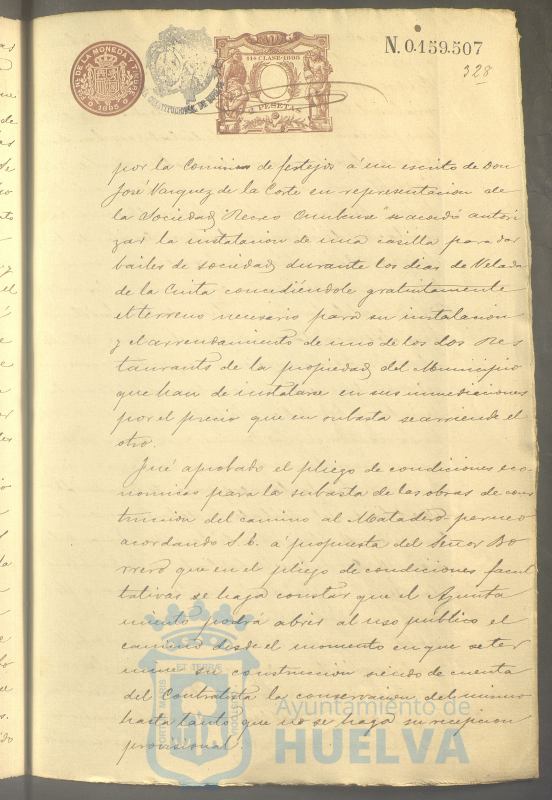 N. 0.159.507
328
11ª CLASE-1895
PESETA
por la Comision de festejos á un escrito de Don
José Vazquez de la Corte en representacion de
la Sociedad "Recreo Onubense" se acordó autori
zar la instalacion de una casilla para dar
bailes de sociedad durante los dias de Velada
de la Cinta concediéndole gratuitamente
el terreno necesario para su instalacion
y el arrendamiento de uno de los dos Res
taurants de la propiedad del Municipio
que han de instalarse en sus inmediaciones
por el precio que en subasta se arriende el
otro.
Fué aprobado el pliego de condiciones eco-
nomicas para la subasta de las obras de cons
truccion del camino al Matadero
acordando S.E. á propuesta del Señor Bo
rrero que en el pliego de condiciones facul
tativas se haga constar que el Ayunta
miento podrá abrir al uso publico el
camino desde el momento en que se ter
mine su construccion siendo de cuenta
del Contratista la conservacion del mismo
hasta tanto que no se haga su recepcion
provisional.
Ayuntamiento de
HUELVA